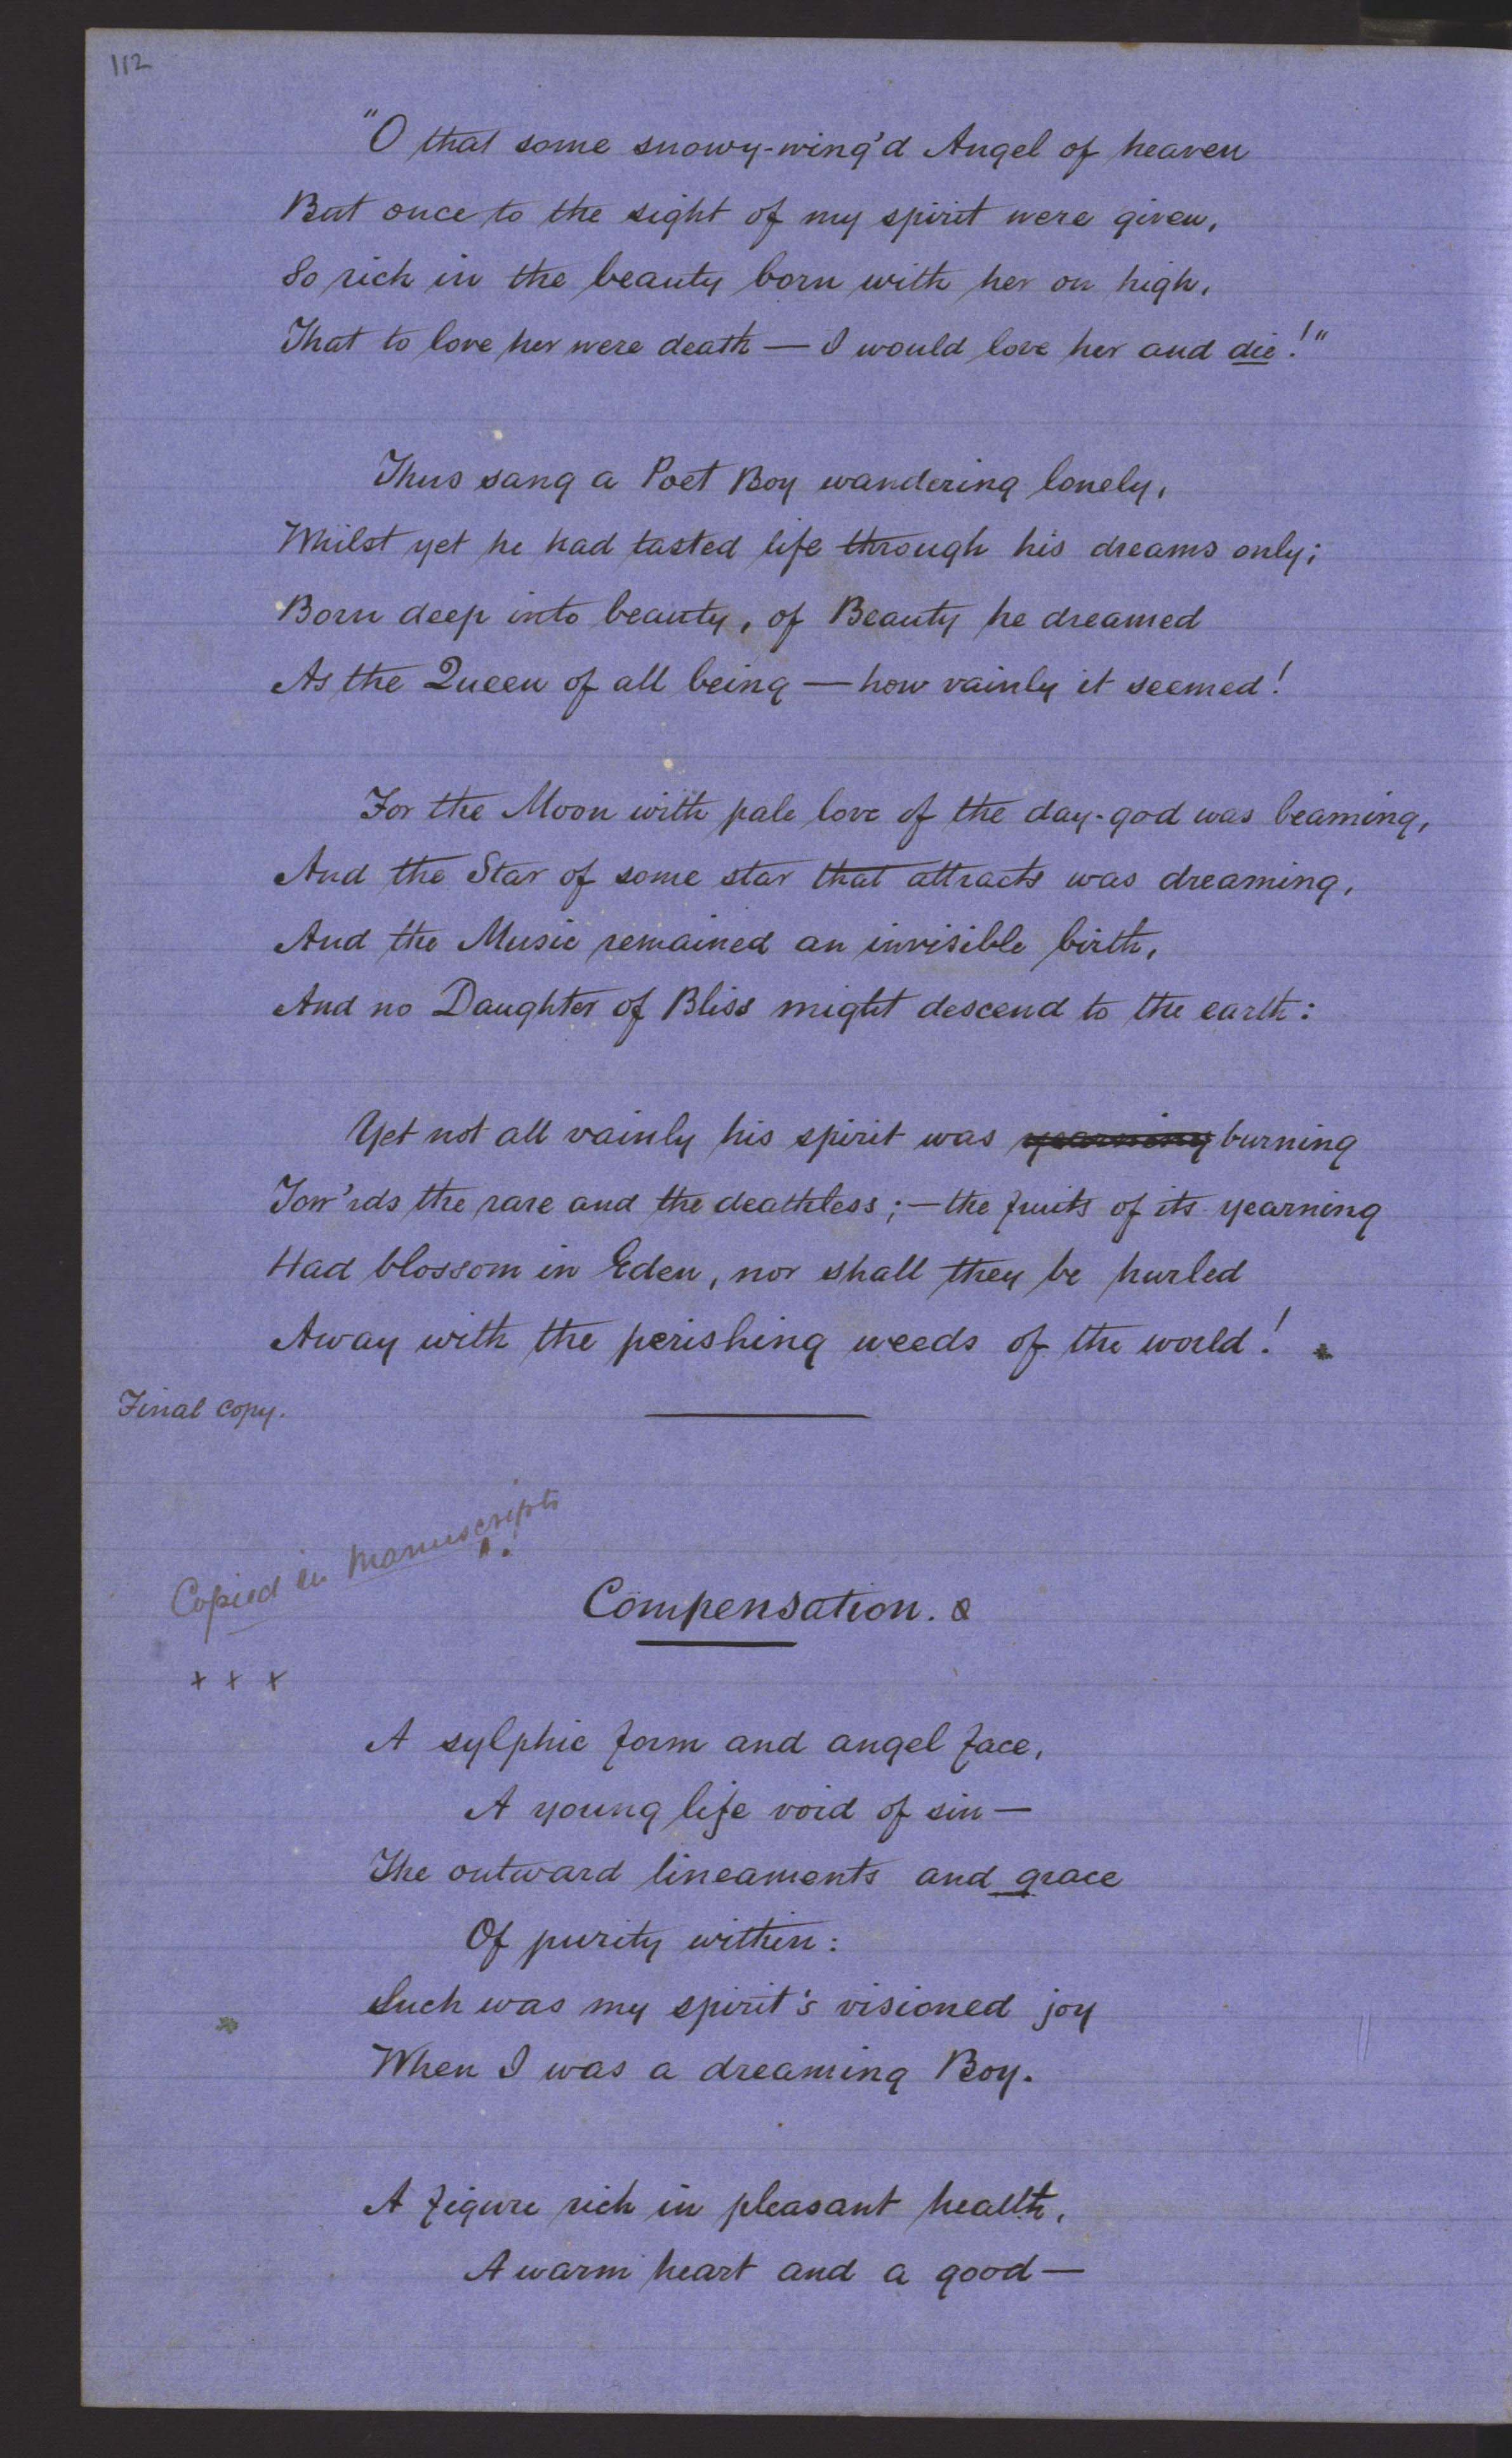 112
"O that some snowy-wing'd Angel of heaven
But once to the sight of my spirit were given,
So rich in the beauty born with her on high,
That to love her were death — I would love her and die!"
Thus sang a Poet Boy wandering lonely,
Whilst yet he had tasted life through his dreams only;
Born deep into beauty, of Beauty he dreamed
As the Queen of all being — how vainly it seemed!
For the Moon with pale love of the day-god was beaming,
And the Star of some star that attracts was dreaming,
And the Music remained an invisible birth,
And no Daughter of Bliss might descend to the earth:
Yet not all vainly his spirit was yearning burning
Tow'rds the rare and the deathless; — the fruits of its yearning
Had blossom in Eden, nor shall they be hurled
Away with the perishing weeds of the world!
Final copy.
Copied in Manuscripts
Compensation.
+ + +
A sylphic form and angel face,
A young life void of sin —
The outward lineaments and grace
Of purity within:
Such was my spirit's visioned joy
When I was a dreaming Boy.
A figure rich in pleasant health,
A warm heart and a good —